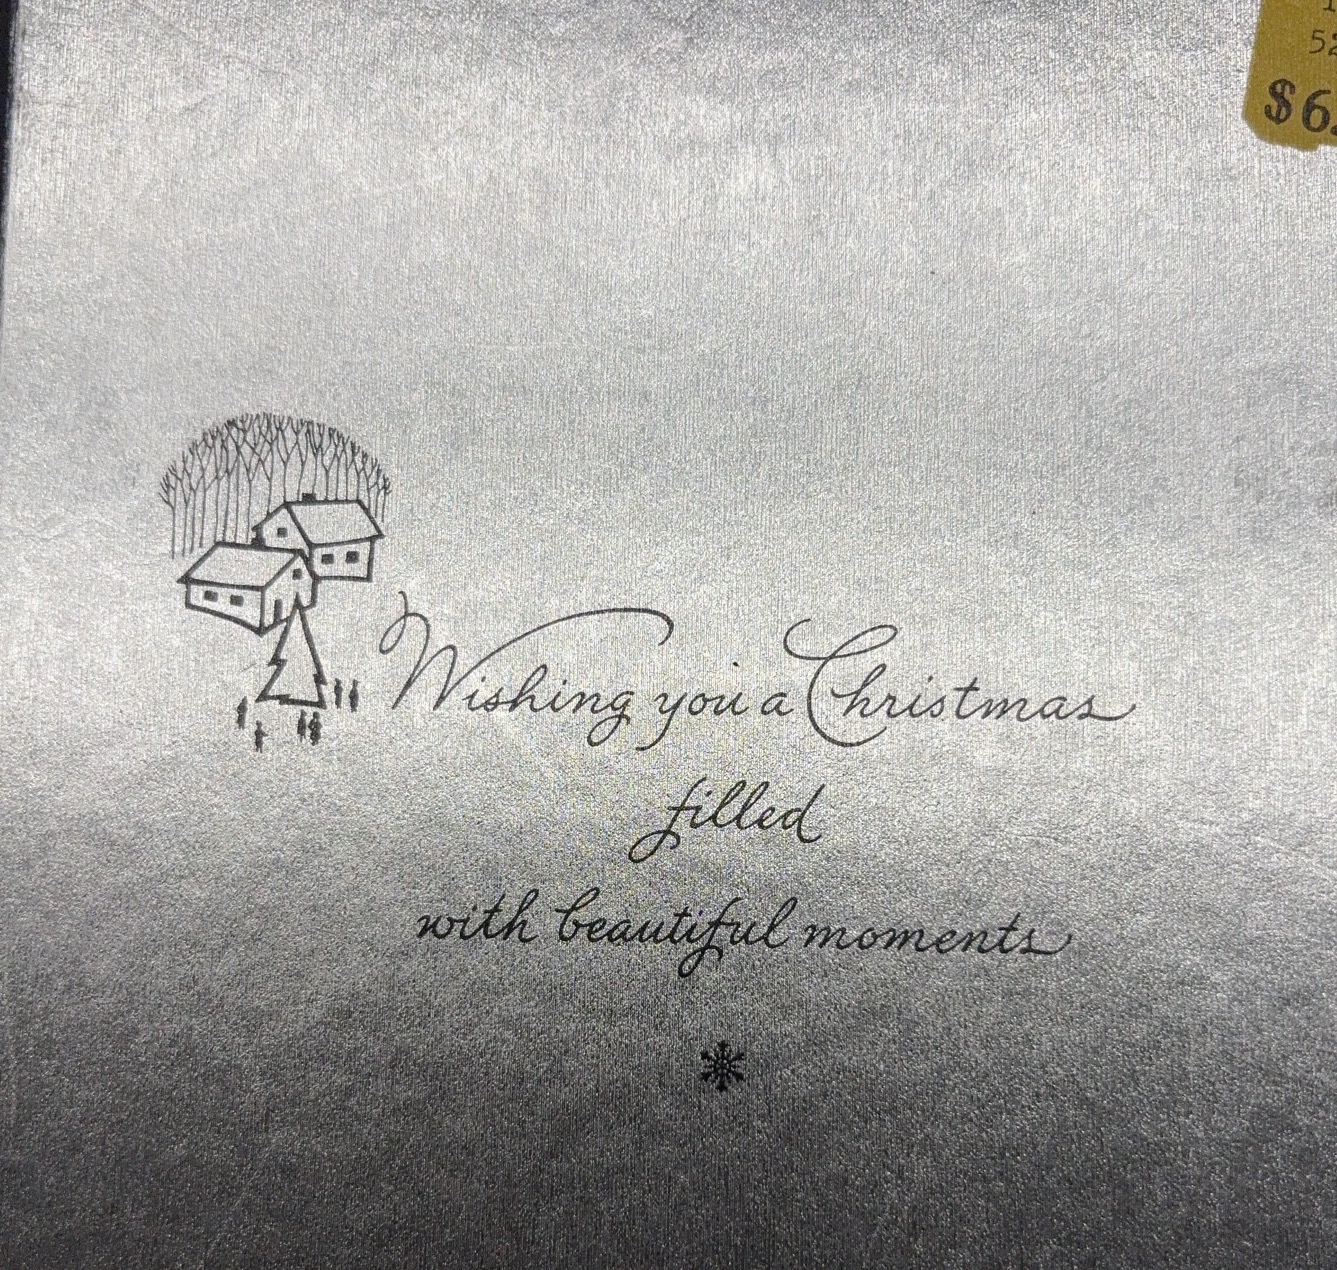 $6.
Wishing you a Christmas
filled
with beautiful moments